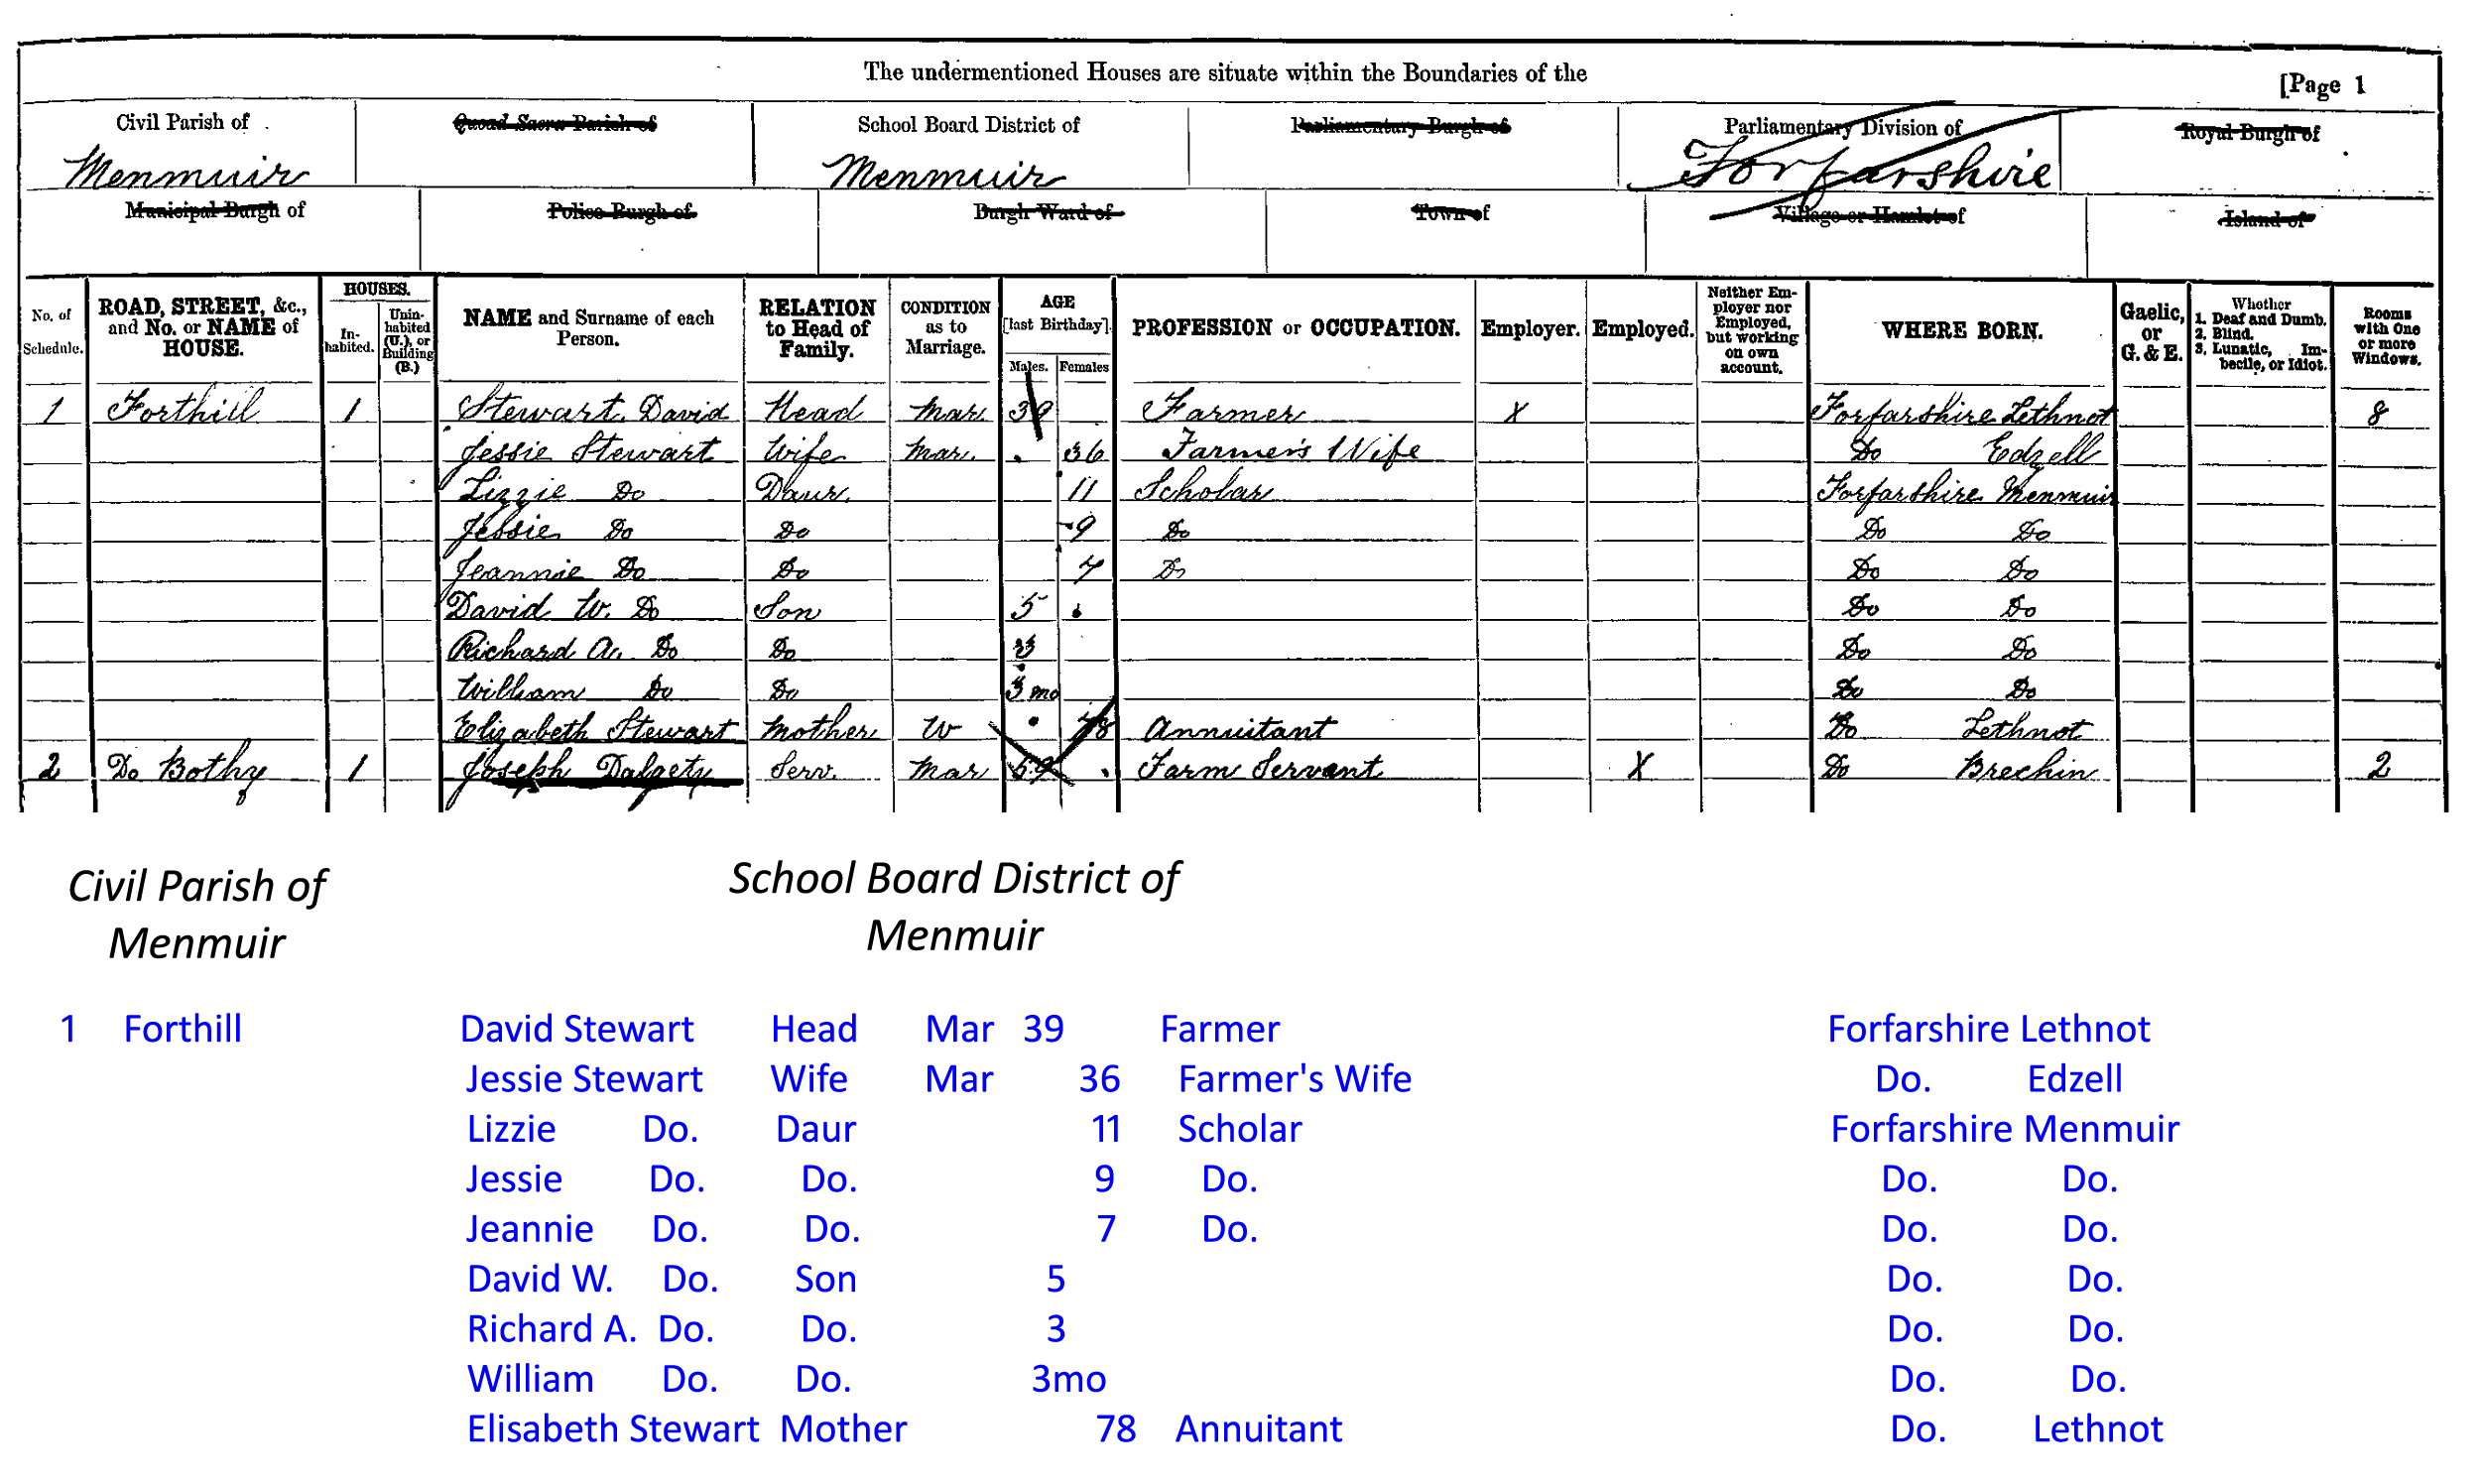 The undermentioned Houses are situate within the Boundaries of the
[Page 1
Civil Parish of Quoad Sacra Parish of School Board District of Parliamentary Burgh of Parliamentary Division of Royal Burgh of
Menmuir Menmuir Forfarshire
Municipal Burgh of Police Burgh of Burgh Ward of Town of Village or Hamlet of Island of
No. of Schedule. ROAD, STREET, &c., and No. or NAME of HOUSE. HOUSES. In-habited. Unin-habited (U.), or Building (B.) NAME and Surname of each Person. RELATION to Head of Family. CONDITION as to Marriage. AGE [last Birthday]. Males. Females PROFESSION or OCCUPATION. Employer. Employed. Neither Em-ployer nor Employed, but working on own account. WHERE BORN. Gaelic, or G. & E. Whether 1. Deaf and Dumb. 2. Blind. 3. Lunatic, Im-becile, or Idiot. Rooms with One or more Windows.
1 Forthill 1 Stewart, David Head Mar. 39 Farmer X Forfarshire Lethnot 8
Jessie Stewart Wife Mar. 36 Farmer's Wife Do Edzell
Lizzie Do Daur. 11 Scholar Forfarshire Menmuir
Jessie Do Do 9 Do Do Do
Jeannie Do Do 7 Do Do Do
David W. Do Son 5 Do Do
Richard A. Do Do 3 Do Do
William Do Do 3 mo Do Do
Elizabeth Stewart Mother W 78 Annuitant Do Lethnot
2 Do Bothy 1 Joseph Dalgety Serv. Mar 59 Farm Servant X Do Brechin 2
Civil Parish of School Board District of
Menmuir Menmuir
1 Forthill David Stewart Head Mar 39 Farmer Forfarshire Lethnot
Jessie Stewart Wife Mar 36 Farmer's Wife Do. Edzell
Lizzie Do. Daur 11 Scholar Forfarshire Menmuir
Jessie Do. Do. 9 Do. Do. Do.
Jeannie Do. Do. 7 Do. Do. Do.
David W. Do. Son 5 Do. Do.
Richard A. Do. Do. 3 Do. Do.
William Do. Do. 3mo Do. Do.
Elisabeth Stewart Mother 78 Annuitant Do. Lethnot